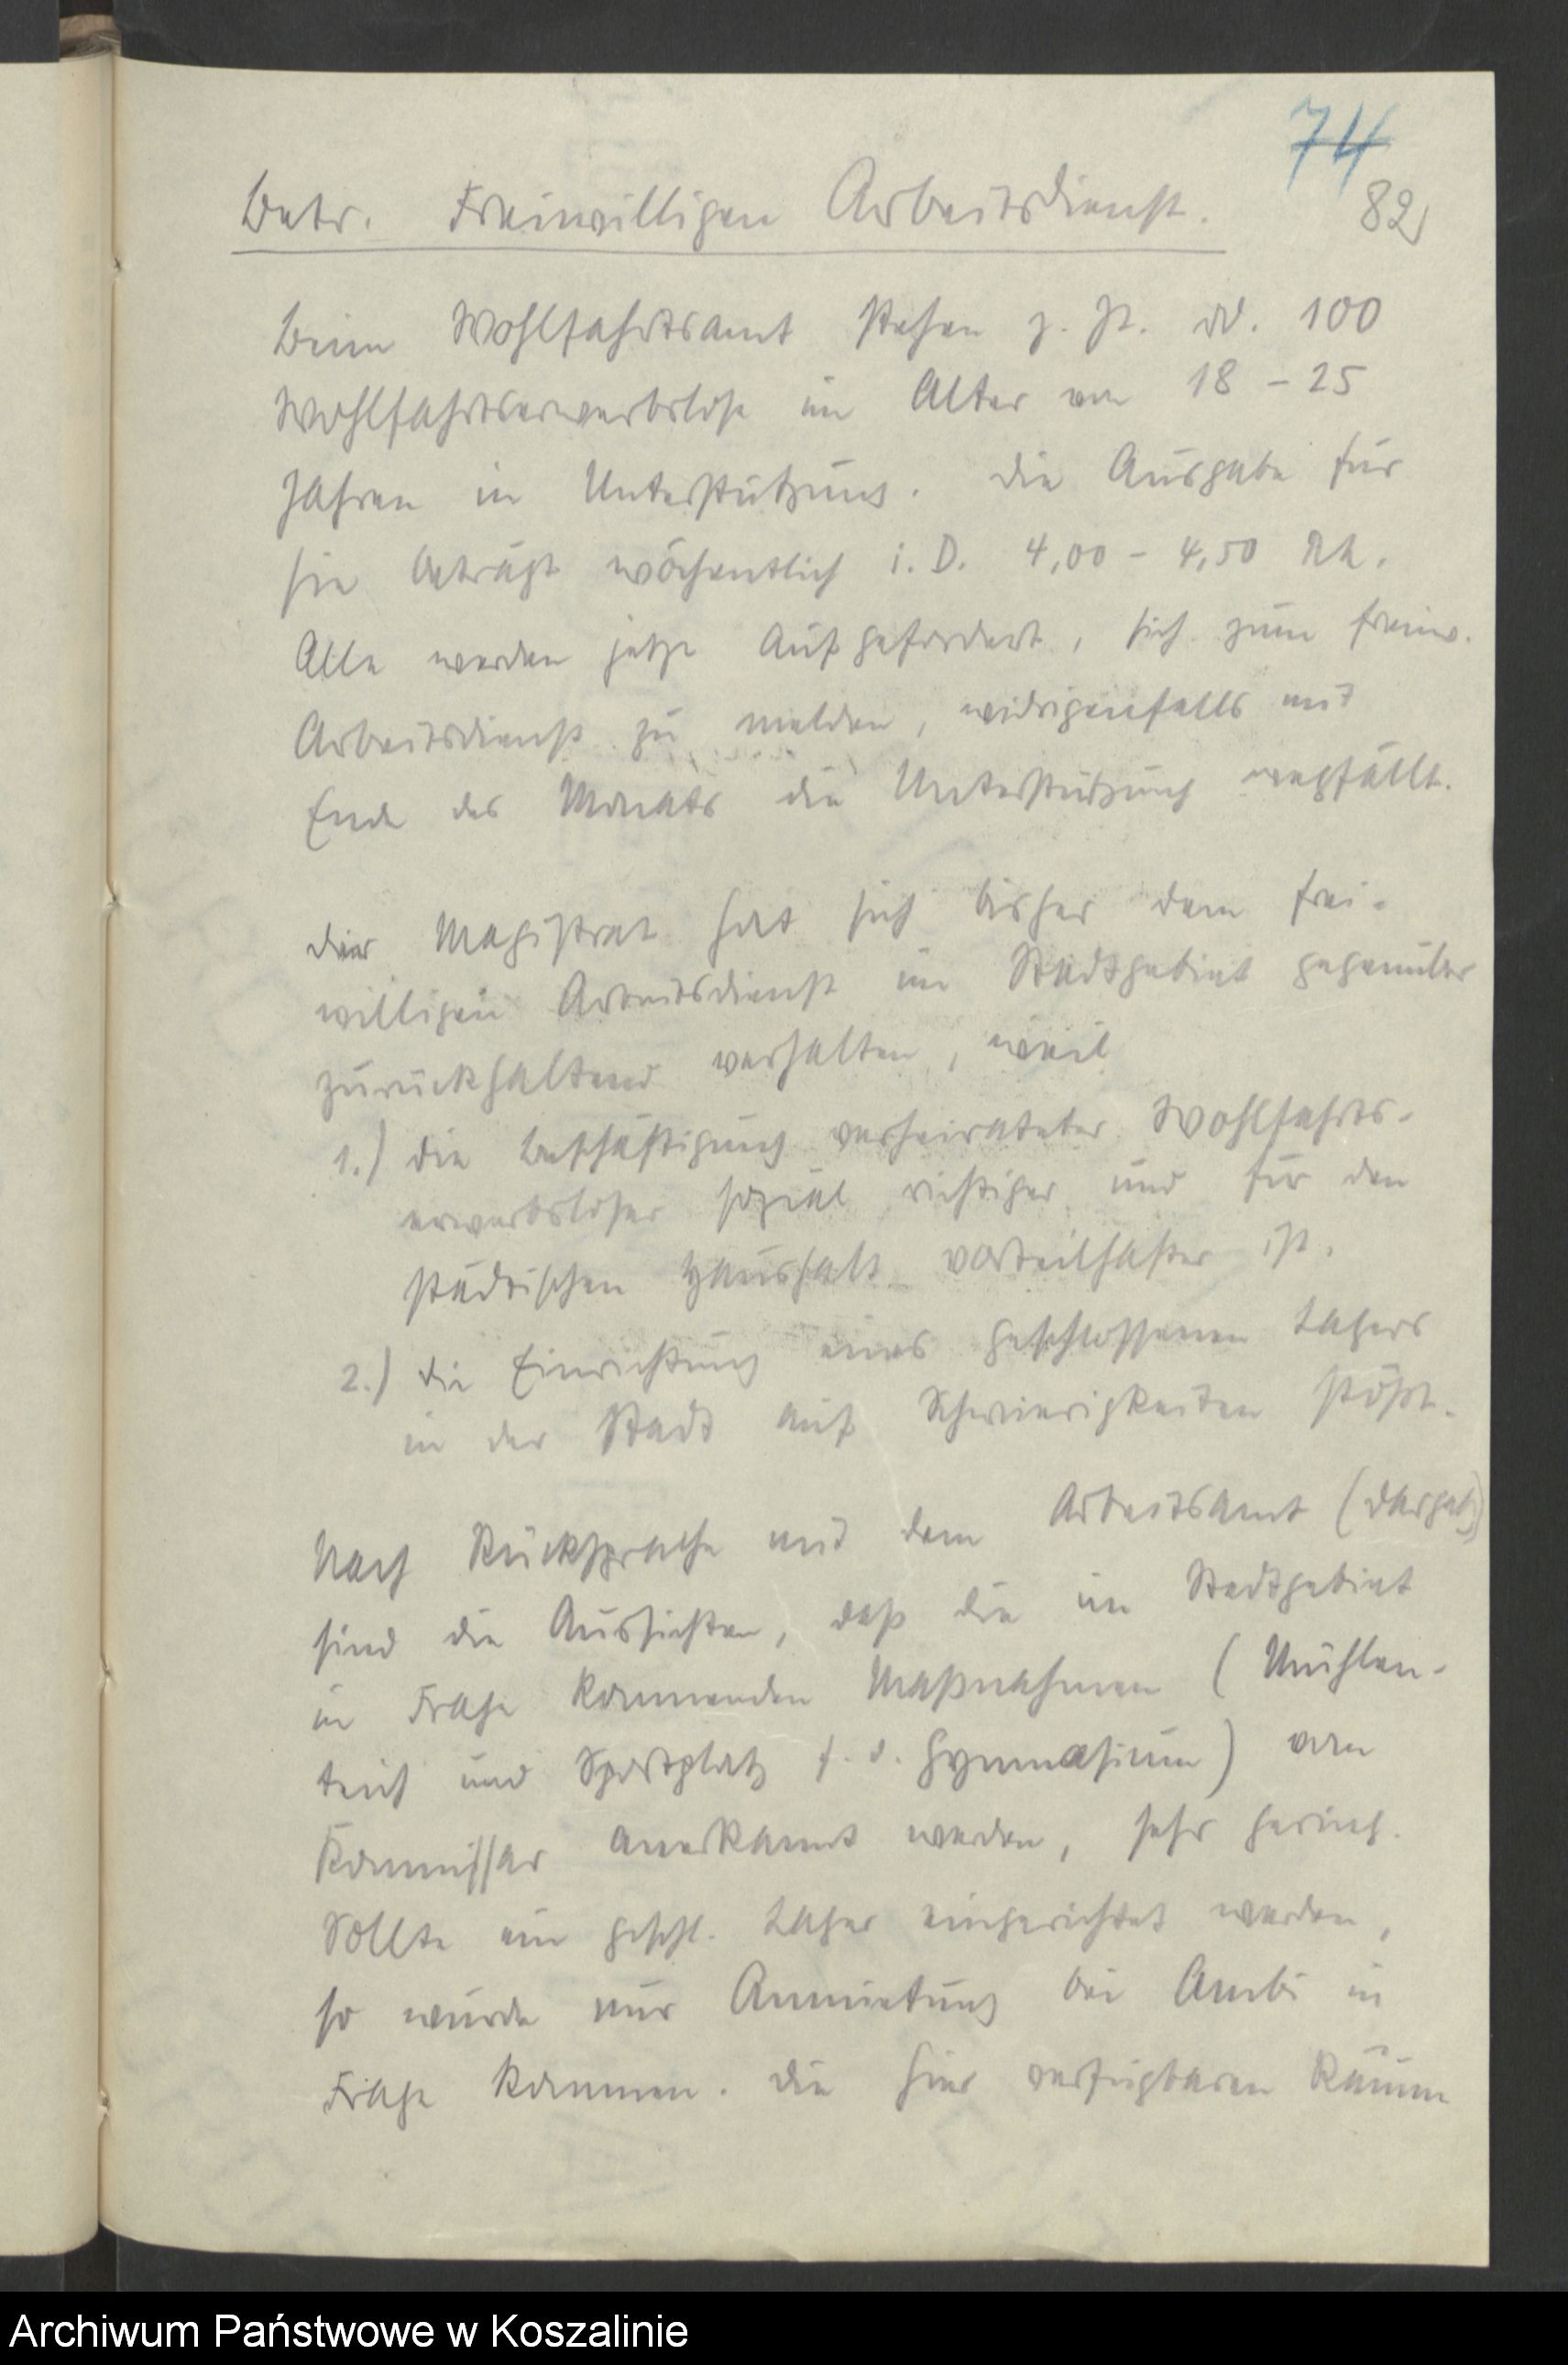 74
82
Betr. Freiwilligen Arbeitsdienst.
Beim Wohlfahrtsamt stehen z. Zt. rd. 100
Wohlfahrtserwerbslose im Alter von 18 – 25
Jahren in Unterstützung. Die Ausgabe für
sie beträgt wöchentlich i. D. 4,00 – 4,50 RM.
Alle werden jetzt aufgefordert, sich zum freiw.
Arbeitsdienst zu melden, widrigenfalls mit
Ende des Monats die Unterstützung wegfällt.
Der Magistrat hat sich bisher dem frei-
willigen Arbeitsdienst im Stadtgebiet gegenüber
zurückhaltend verhalten, weil
1.) die Beschäftigung verheirateter Wohlfahrts-
erwerbsloser sozial richtiger und für den
städtischen Haushalt vorteilhafter ist,
2.) die Einrichtung eines geschlossenen Lagers
in der Stadt auf Schwierigkeiten stößt.
Nach Rücksprache mit dem Arbeitsamt (Dargatz)
sind die Aussichten, daß die im Stadtgebiet
in Frage kommenden Maßnahmen (Mühlen-
teich und Sportplatz f. d. Gymnasium) vom
Kommissar anerkannt werden, sehr gering.
Sollte ein geschl. Lager eingerichtet werden,
so würde nur Anmietung bei Ambi in
Frage kommen. Die hier verfügbaren Räume
Archiwum Państwowe w Koszalinie